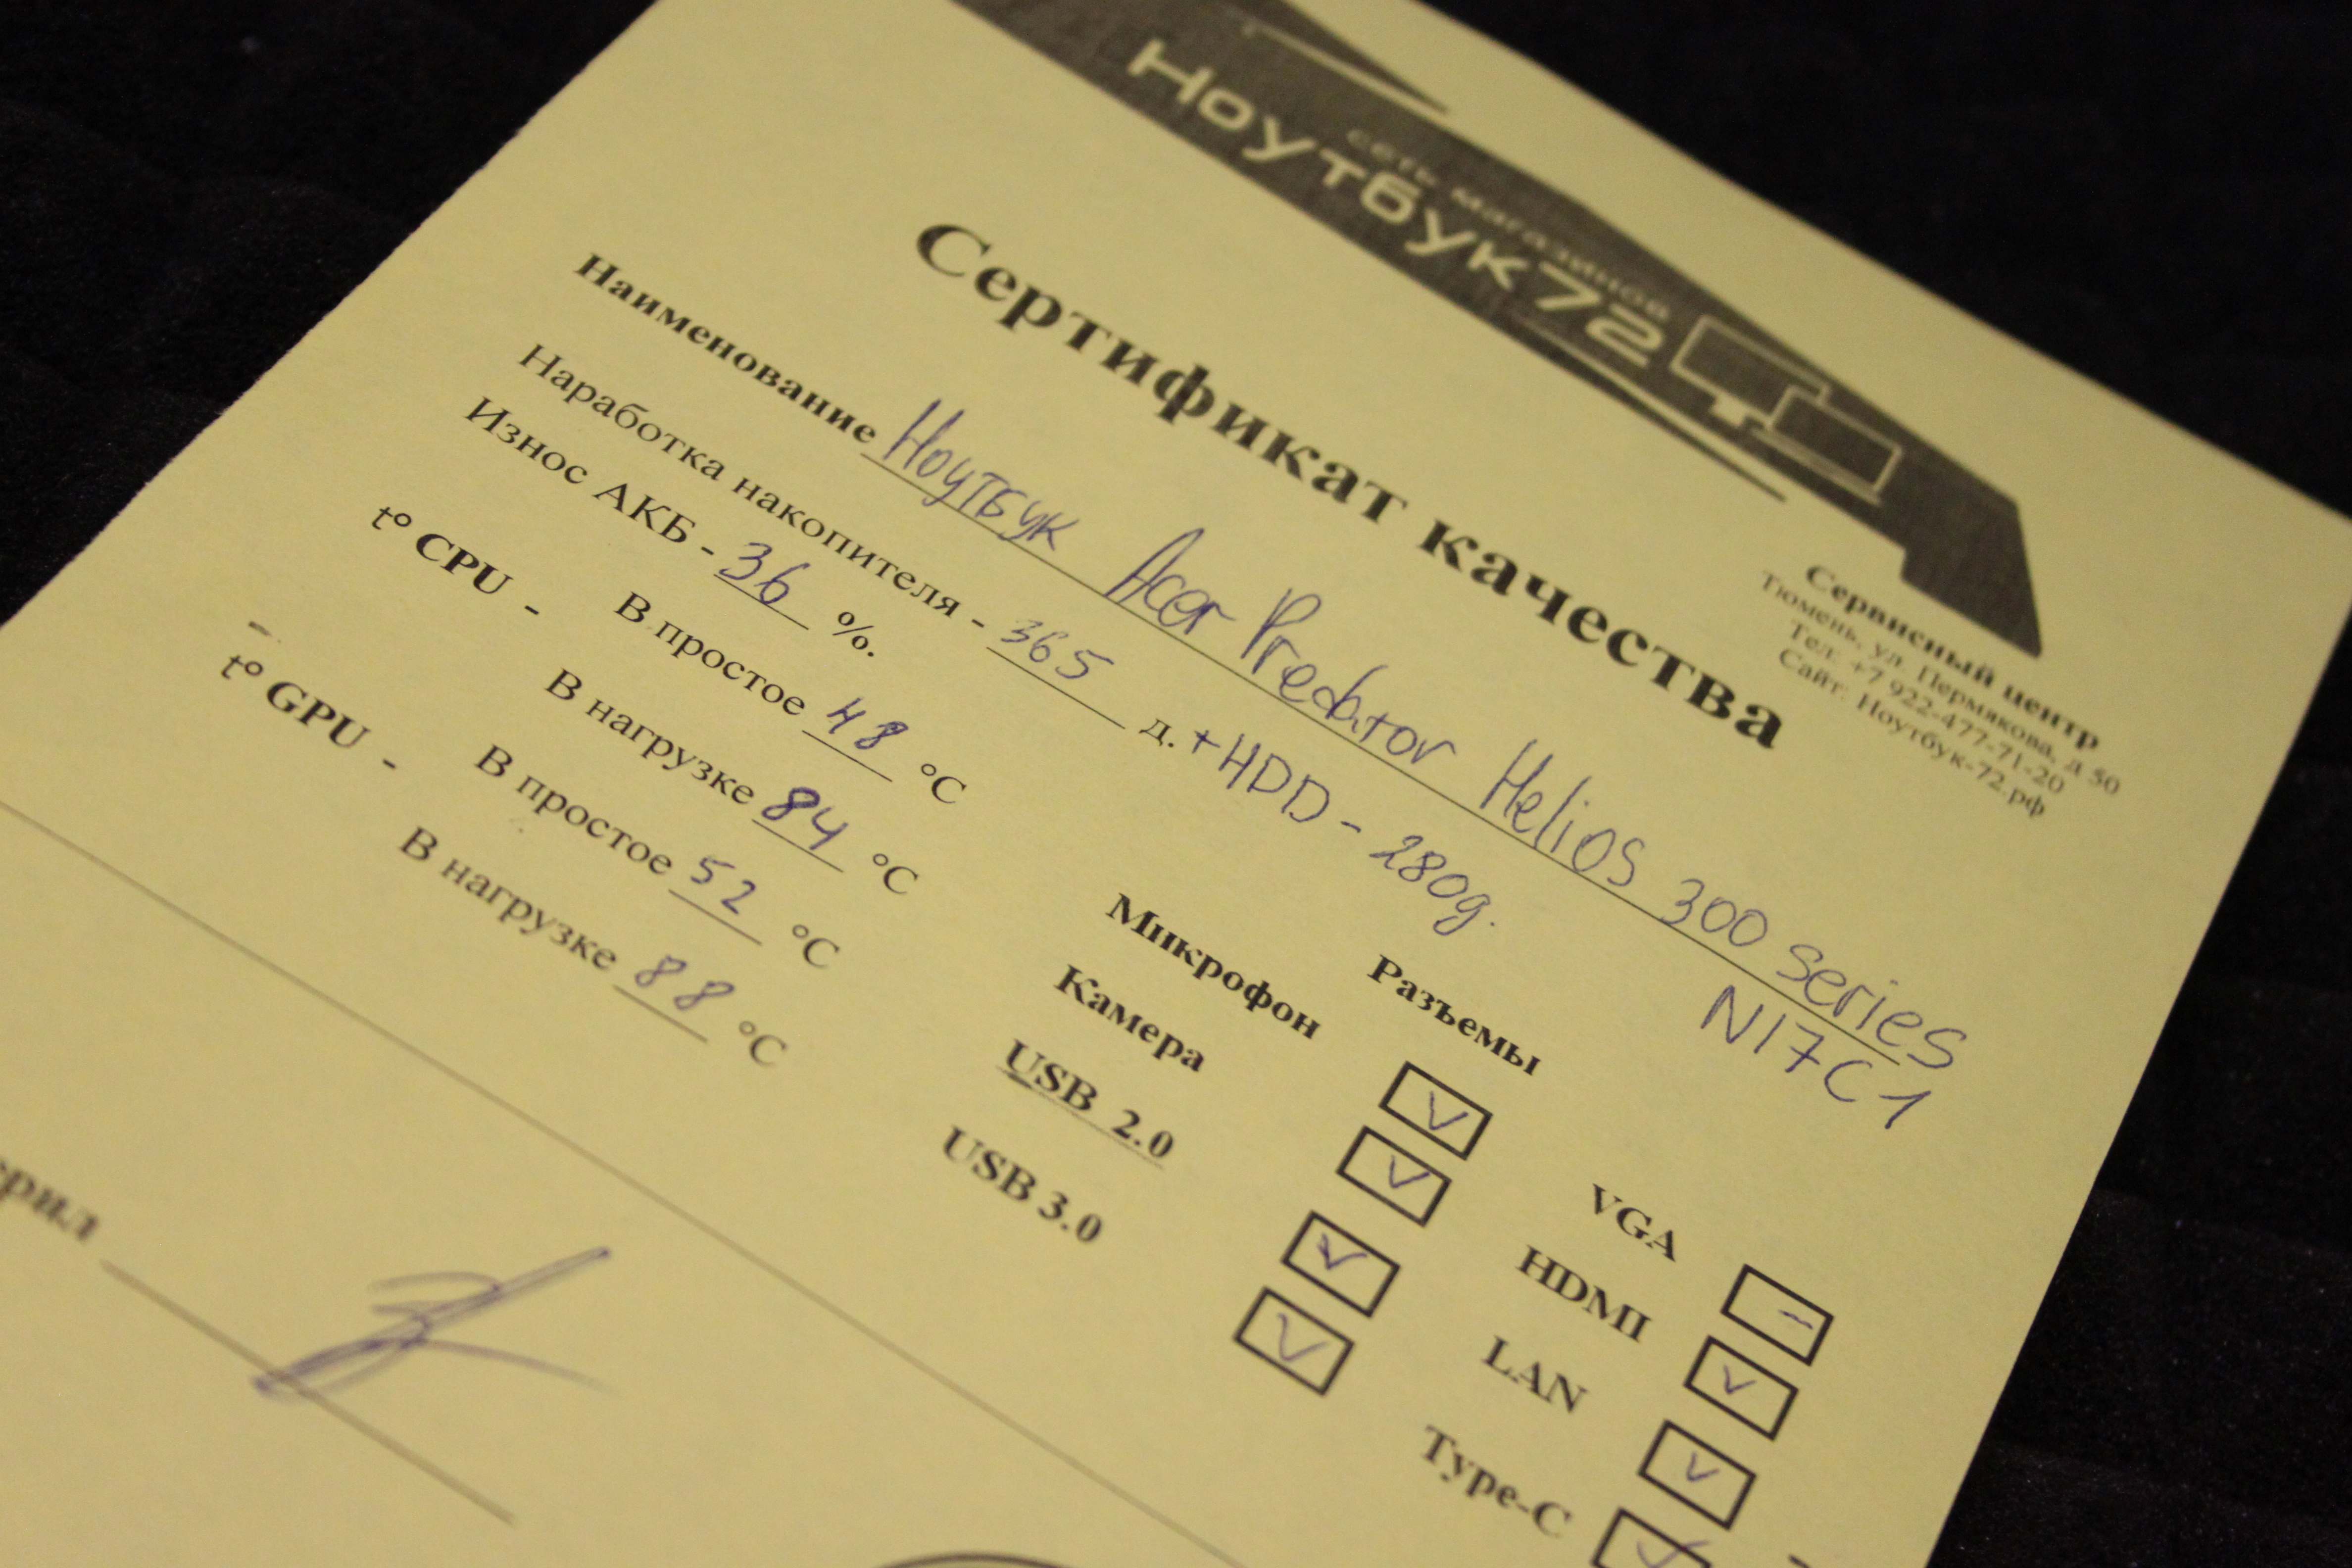 сеть магазинов
Ноутбук72
Сервисный центр
Тюмень, ул. Пермякова, д 50
Тел: +7 922-477-71-20
Сайт: Ноутбук-72.рф
Сертификат качества
Наименование Ноутбук Acer Predator Helios 300 series
N17C1
Наработка накопителя - 365 д. + HDD - 280д.
Износ АКБ - 36 %.
t° CPU - В простое 48 °C
В нагрузке 84 °C
t° GPU - В простое 52 °C
В нагрузке 88 °C
Разъемы
Микрофон
Камера
USB 2.0
USB 3.0
VGA –
HDMI
LAN
Type-C